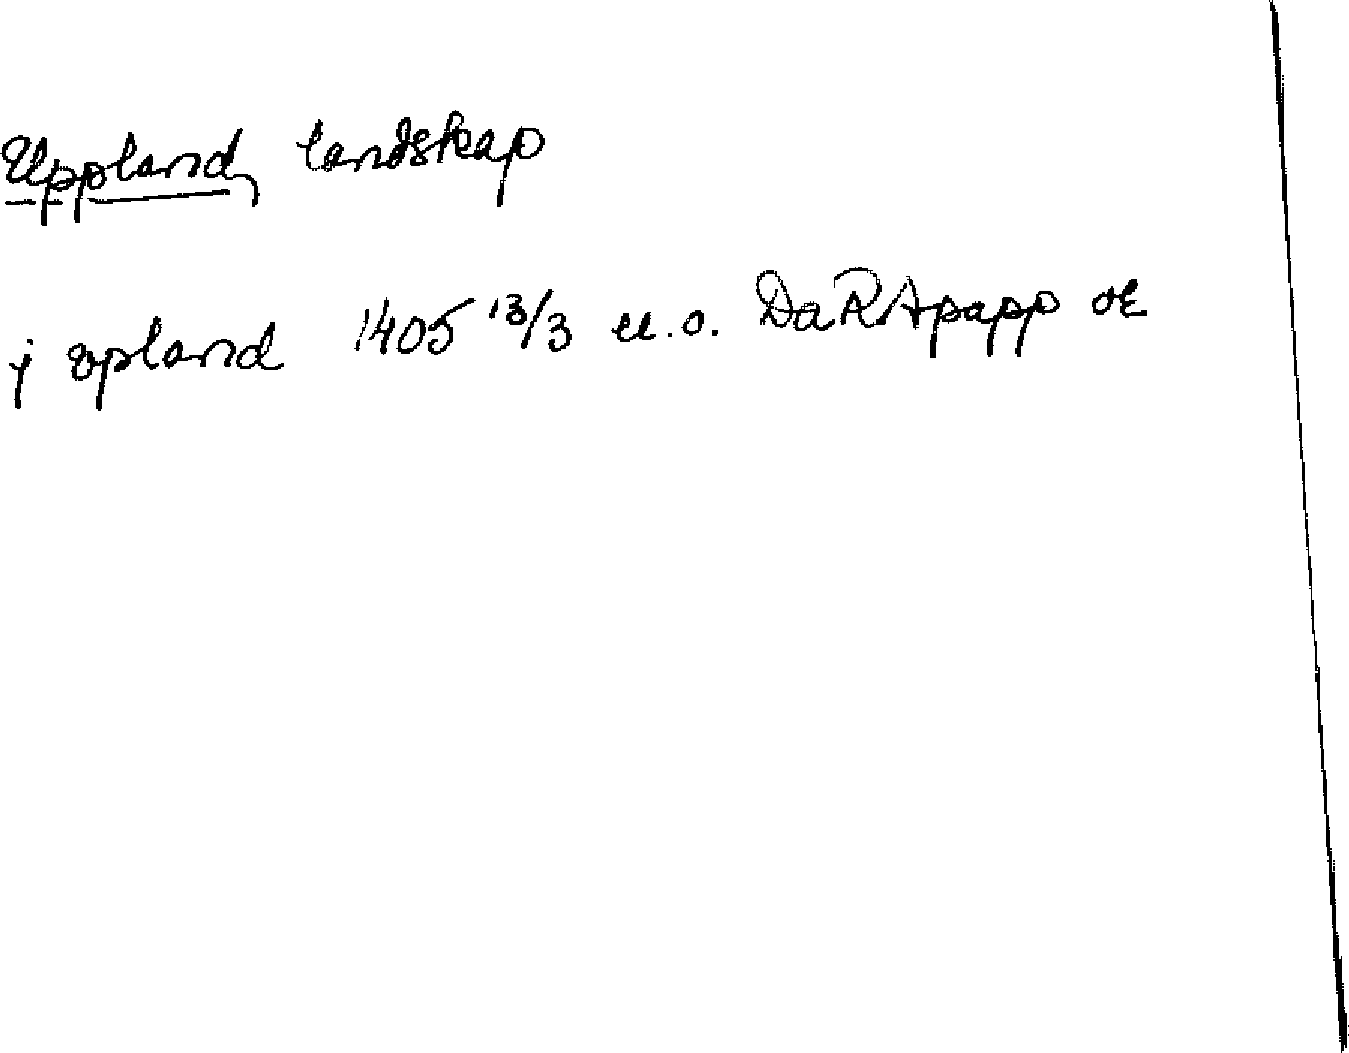 Uppland, landskap
j vpland 1405 13/3 u.o. DaRApapp or